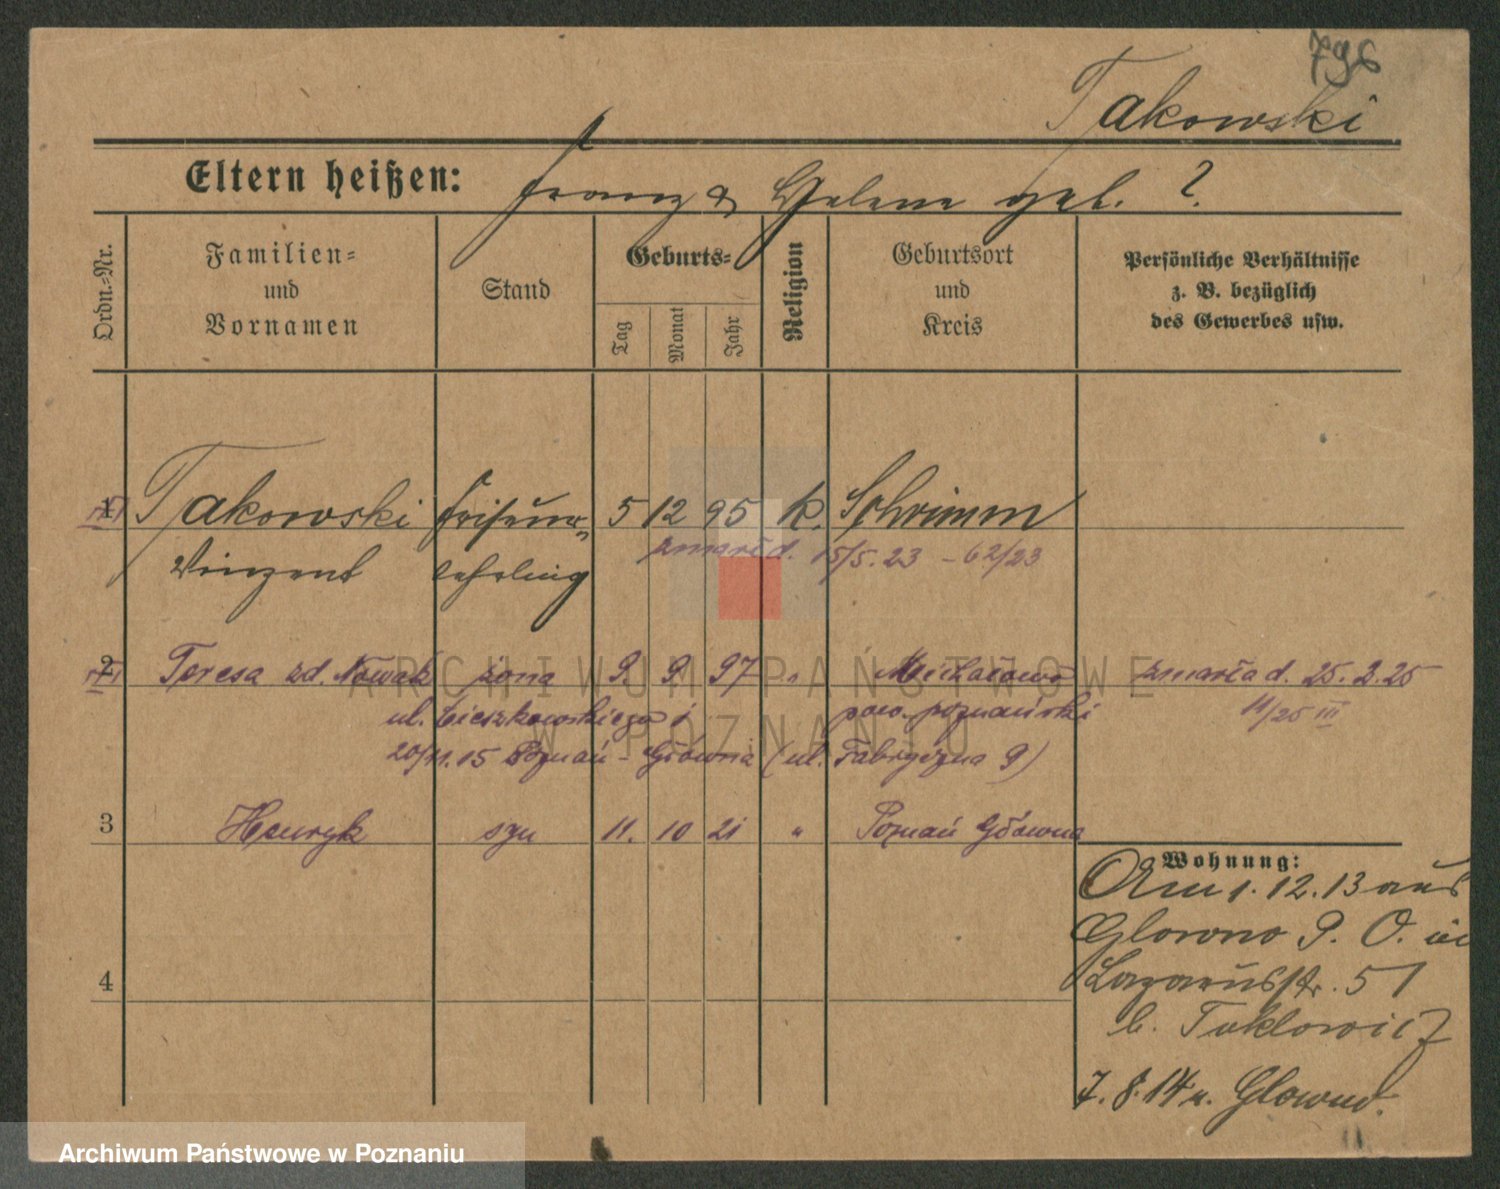 796
Takowski
Eltern heißen: Franz & Helene geb. ?
Ordn.-Nr.
Familien- und Vornamen
Stand
Geburts-
Tag
Monat
Jahr
Religion
Geburtsort und Kreis
Persönliche Verhältnisse
z. B. bezüglich
des Gewerbes usw.
1 Takowski Friseur- 5 12 95 k. Schrimm
zmarł d. 15/5. 23 – 62/23
Vinzent lehrling
2 Teresa zd. Nowak żona 9. 9. 97 " Michałowo zmarła d. 25. 2. 25
ul. Cieszkowskiego pow. poznański 11/25 III
20/11.15 Poznań - Główna (ul. Fabryczna 9)
3 Henryk syn 11. 10 21 " Poznań Główna
Wohnung:
Am 1. 12. 13 aus
Glowno P. O. in
Lazarusstr. 51
b. Tuklowicz
4
7. 8. 14 n. Glowno.
ARCHIWUM PAŃSTWOWE
W POZNANIU
Archiwum Państwowe w Poznaniu